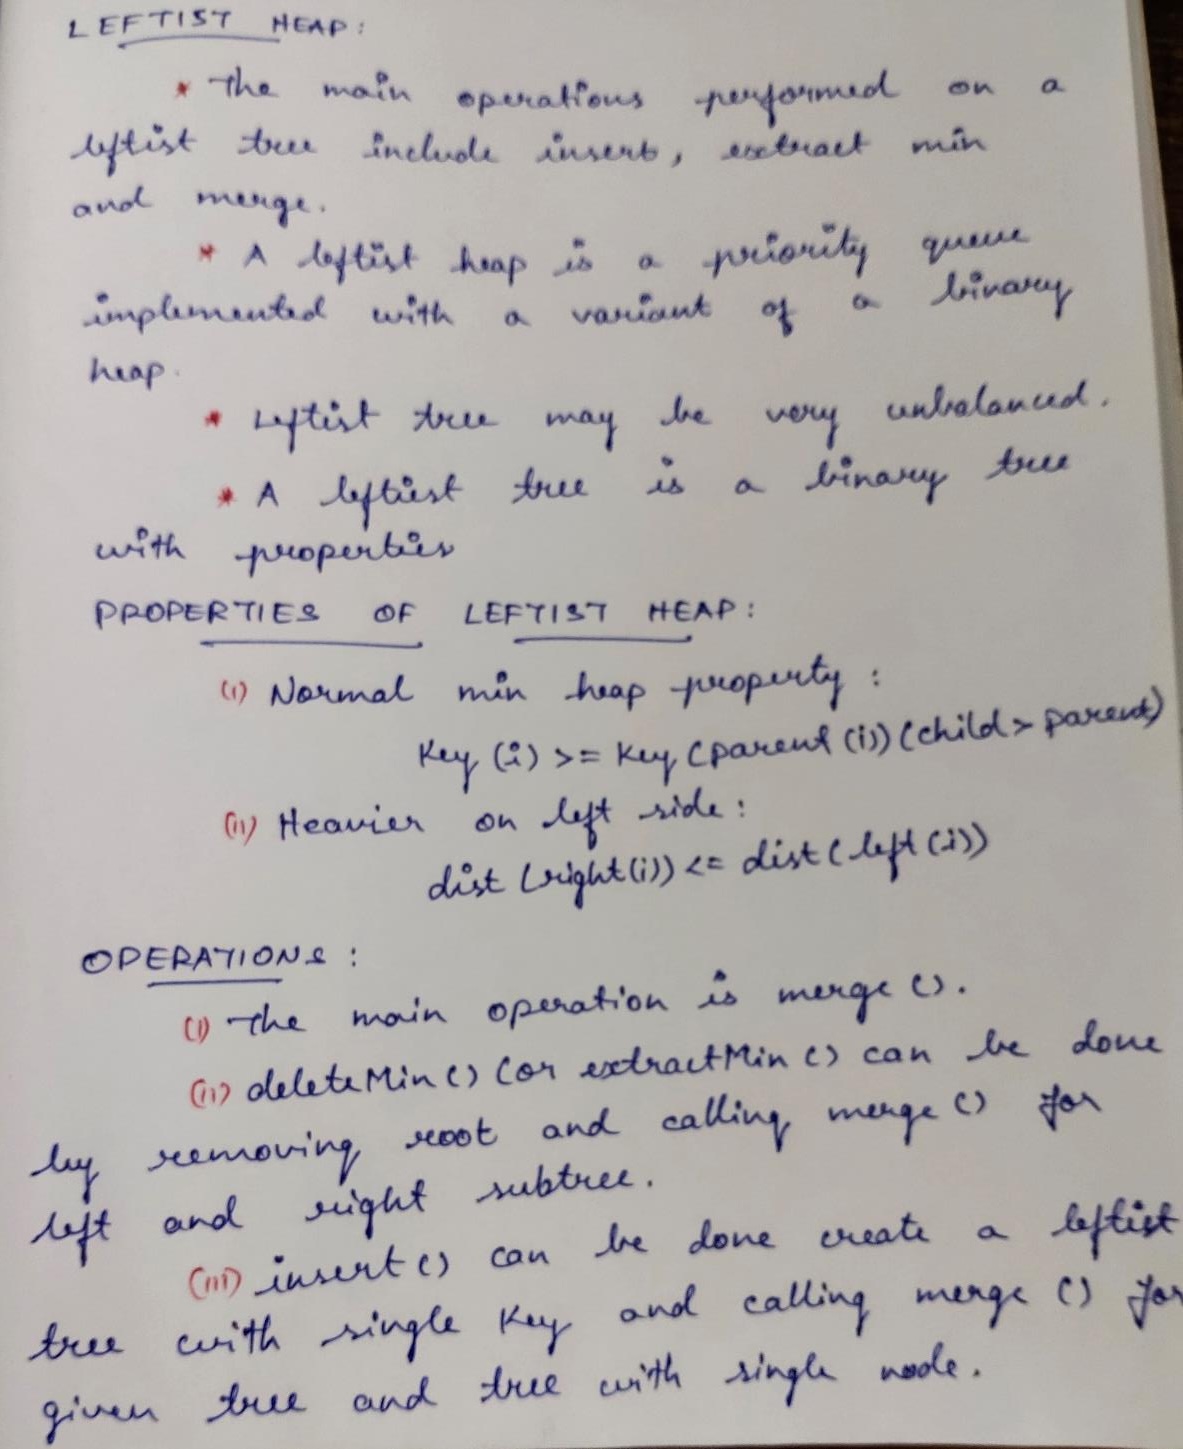 LEFTIST HEAP:
* The main operations performed on a
leftist tree include insert, extract min
and merge.
* A leftist heap is a priority queue
implemented with a variant of a binary
heap.
* Leftist tree may be very unbalanced.
* A leftist tree is a binary tree
with properties
PROPERTIES OF LEFTIST HEAP:
(i) Normal min heap property:
Key (i) >= Key (parent (i)) (child > parent)
(ii) Heavier on left side:
dist (right(i)) <= dist (left (i))
OPERATIONS:
(i) The main operation is merge ().
(ii) deleteMin () (or extractMin () can be done
by removing root and calling merge () for
left and right subtree.
(iii) insert () can be done create a leftist
tree with single Key and calling merge () for
given tree and tree with single node.